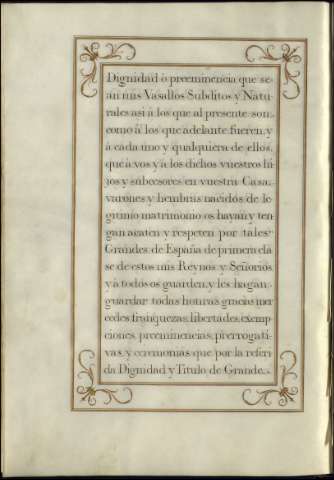 Dignidad ò preeminencia que se-
an mis Vasallos Subditos y Natu-
rales asi à los que al presente son,
como à los que adelante fueren, y
à cada uno y qualquiera de ellos,
que à vos y à los dichos vuestros hi-
jos y subcesores en vuestra Casa,
varones y hembras nacidos de le-
gitimo matrimonio os hayan y ten-
gan acaten y respeten por tales
Grandes de España de primera cla-
se de estos mis Reynos y Señorios
y à todos os guarden, y les hagan
guardar todas honras gracias mer-
cedes franquezas, libertades, exemp-
ciones, preeminencias, prerrogati-
vas, y ceremonias que por la referi-
da Dignidad y Titulo de Grande,